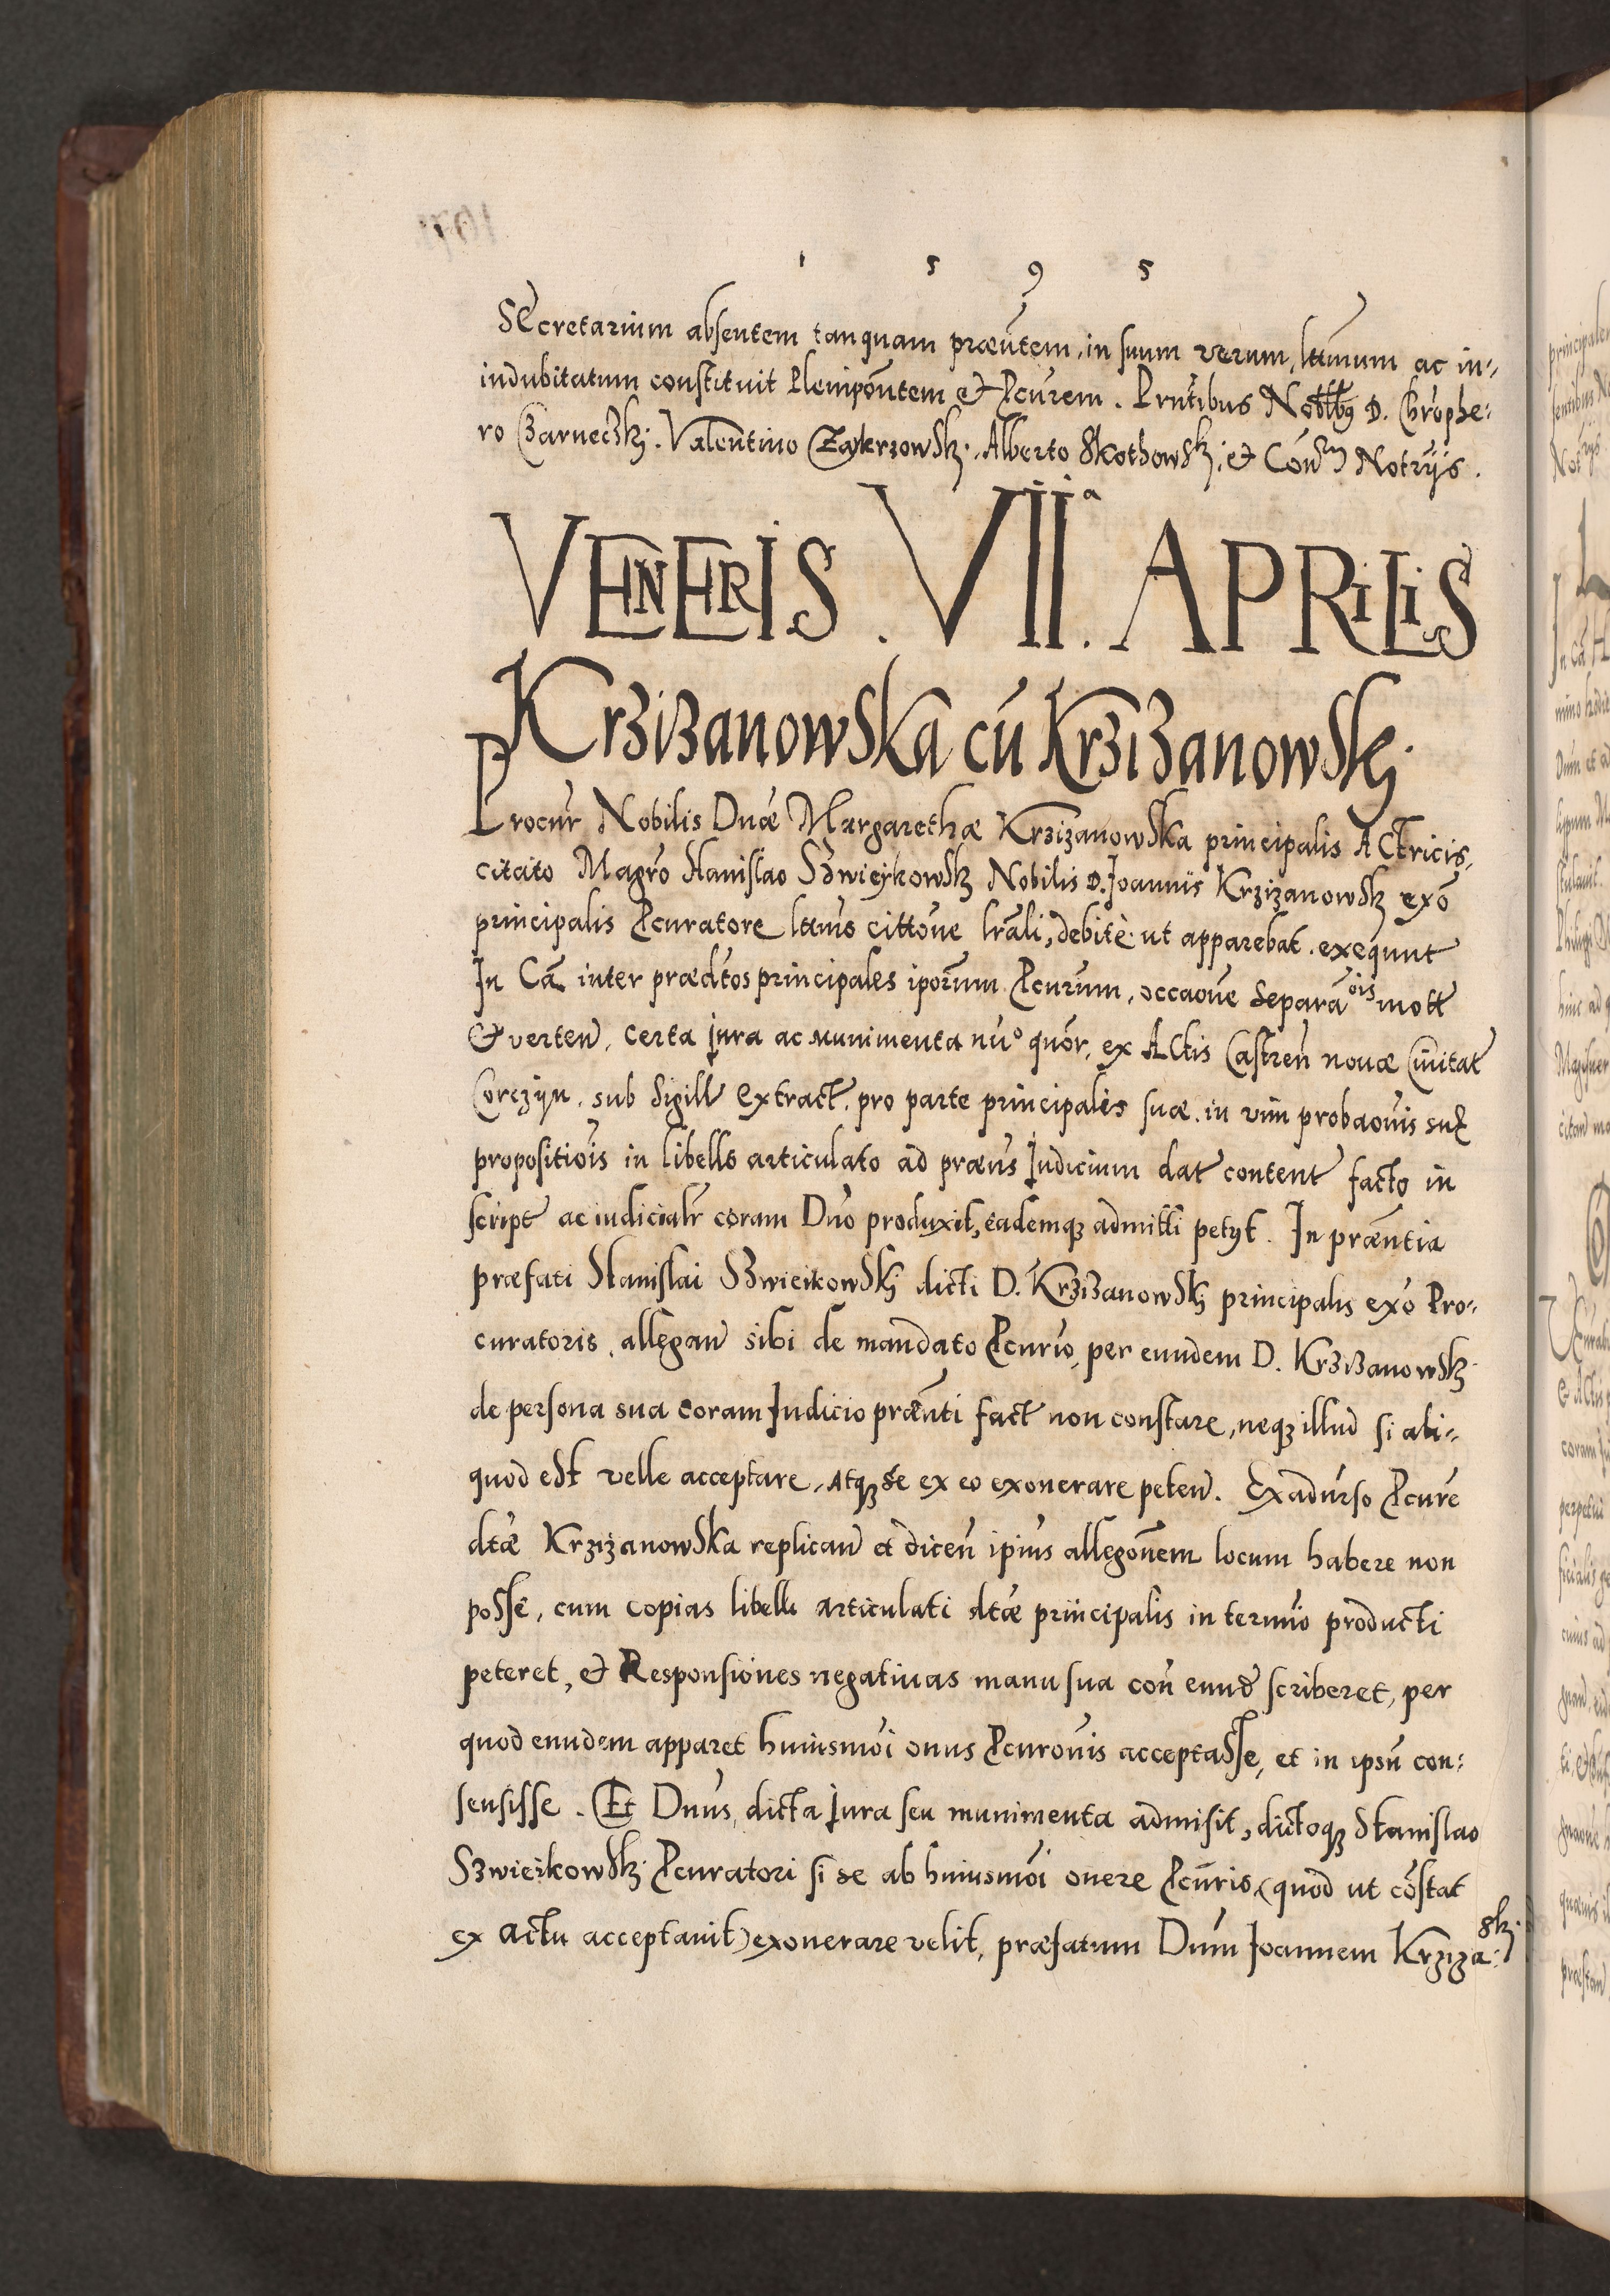 1 5 9 5
SEcretarium absentem tanquam præūtem, in suum verum, lt̄imum ac in-
indubitatum constituit Plenipōntem et Pcūrem. Prn̄tibus Nobllbq D. Chrōphe-
ro Czarneczkj. Valentino Zakrzowskj. Alberto Skothowskj; et Coūm Notrijs.
VENERIS. VIIª. APRILIS
Krzizanowska cū Krzizanowskj
Procūr Nobilis Dnæ Margarethæ Krzizanowska principalis Actricis,
citato Magrō Stanislao Szwieykowsk Nobilis D. Joannis Krzizanowsk exō
principalis Pcuratore ltimo cittōne lrāli, debitè ut apparebat. exequut
In Cā inter prædtos principales iporum Pcurūm, occaōne separā ois mott
et verten, certa jura ac munimenta nū° quōr, ex Actis Castren novæ Civitat
Corczyn. sub sigill extract. pro parte principalis suæ. in vim probaōnis suæ
propositiōis in libello articulato ad præūs Judicium dat content facto in
script ac iudicialr coram Dnō produxit, eademqz admitti petyt. In præn̄tia
præfati Stanislai Szwieikowskj dicti D. Krzizanowskj principalis exō Pro-
curatoris, allegan sibi de mandato Pcurio, per eundem D. Krzizanowskj
de persona sua coram Judicio præn̄ti fact non constare, neqz illud si ali-
quod est velle acceptare, Atqz se ex eo exonerare peten. Ex adūrso Pcure
dtæ Krzizanowska replican et dicen̄ ipius allegōnem locum habere non
posse, cum copias libelli articulati dtæ principalis in termīo producti
peteret, et Responsiones negativas manu sua con̄ eund scriberet, per
quod eundem apparet huiusmōi onus Pcurōnis acceptasse, et in ipsū con-
sensisse. Et Dnus, dicta jura seu munimenta admisit, dictoqz Stanislao
Szwieikowskj Pcuratori si se ab huiusmōi onere Pcūris, (quod ut cōstat
ex actu acceptavit) exonerare velit, præfatum Dnūm Joannem Krziza-
skj